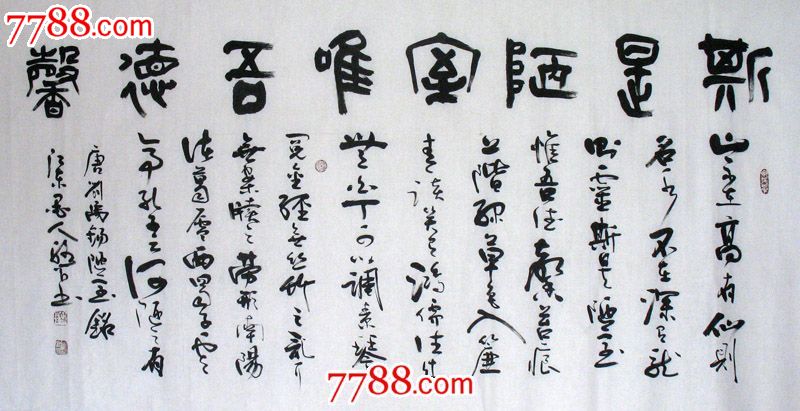 7788.com
斯是陋室唯吾德馨
山不在高有仙則
名水不在深有龍
則靈斯是陋室
惟吾德馨苔痕
上階綠草色入簾
青談笑有鴻儒往來
無白丁可以調素琴
閱金經無絲竹之亂耳
無案牘之勞形南陽
諸葛廬西蜀子雲
亭孔子云何陋之有
唐劉禹錫陋室銘
人
書
7788.com
7788.com